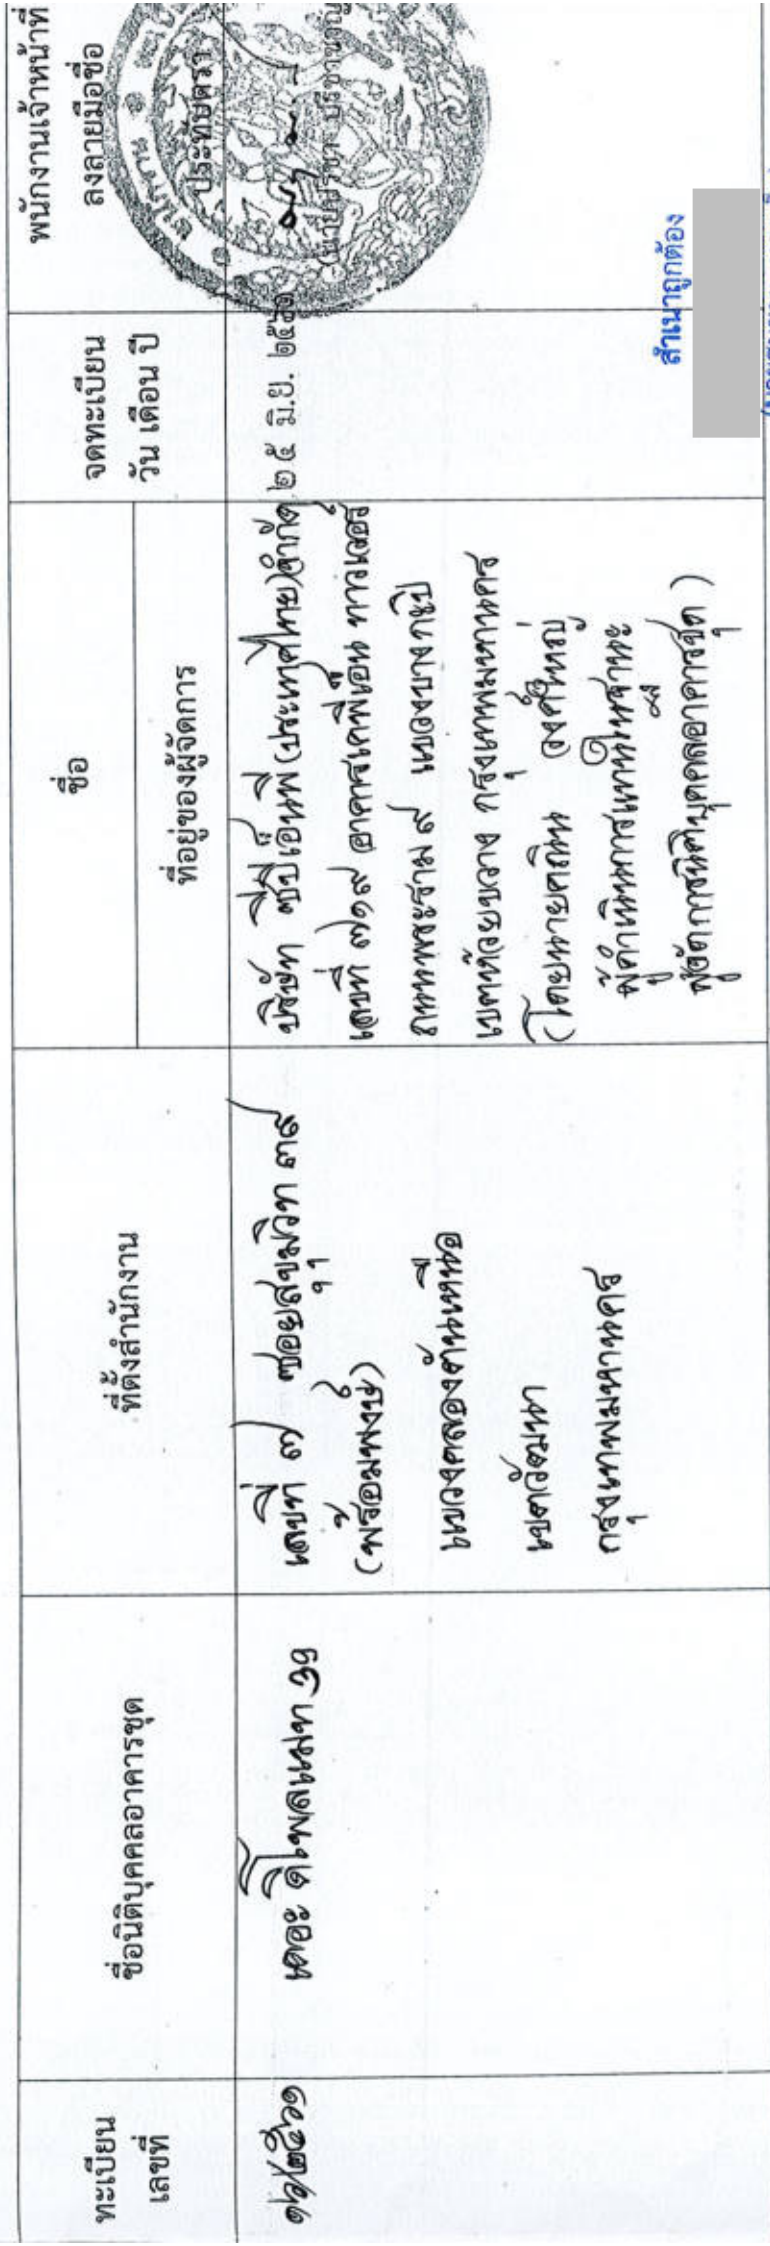 ทะเบียน
เลขที่
ชื่อนิติบุคคลอาคารชุด
ที่ตั้งสำนักงาน
ชื่อ
ที่อยู่ของผู้จัดการ
จดทะเบียน
วัน เดือน ปี
พนักงานเจ้าหน้าที่
ลงลายมือชื่อ
ประทับตรา
เดอะ ดิโพลแมท ๓๙
เลขที่ ๗ ซอยสุขุมวิท ๓๙
(พร้อมพงษ์)
แขวงคลองตันเหนือ
เขตวัฒนา
กรุงเทพมหานคร
บริษัท (ประเทศไทย) จำกัด
เลขที่ ๗๑๙ อาคาร ทาวเวอร์
ถนนพระราม ๙ แขวงบางกะปิ
เขตห้วยขวาง กรุงเทพมหานคร
(โดยนาย
ผู้ดำเนินการแทนในฐานะ
ผู้จัดการนิติบุคคลอาคารชุด)
๒๕ มิ.ย.
สำเนาถูกต้อง